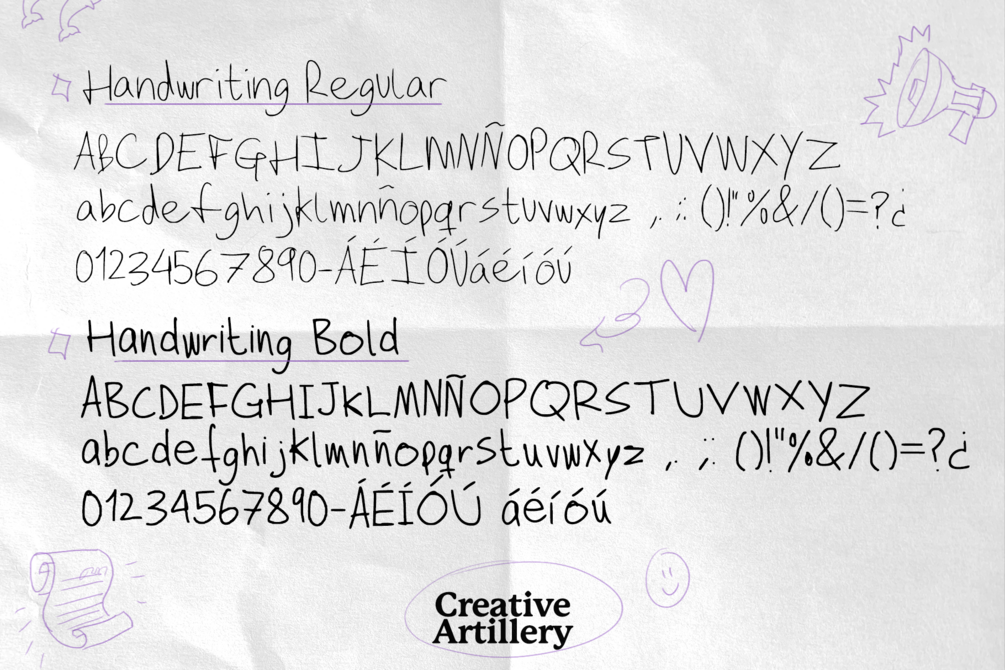 Handwriting Regular
ABCDEFGHIJKLMNÑOPQRSTUVWXYZ
abcdefghijklmnñopqrstuvwxyz , . ; : ()!"%&/()=?¿
01234567890-ÁÉÍÓÚáéíóú
Handwriting Bold
ABCDEFGHIJKLMNÑOPQRSTUVWXYZ
abcdefghijklmnñopqrstuvwxyz , . ; : ()!"%&/()=?¿
01234567890-ÁÉÍÓÚ áéíóú
Creative
Artillery